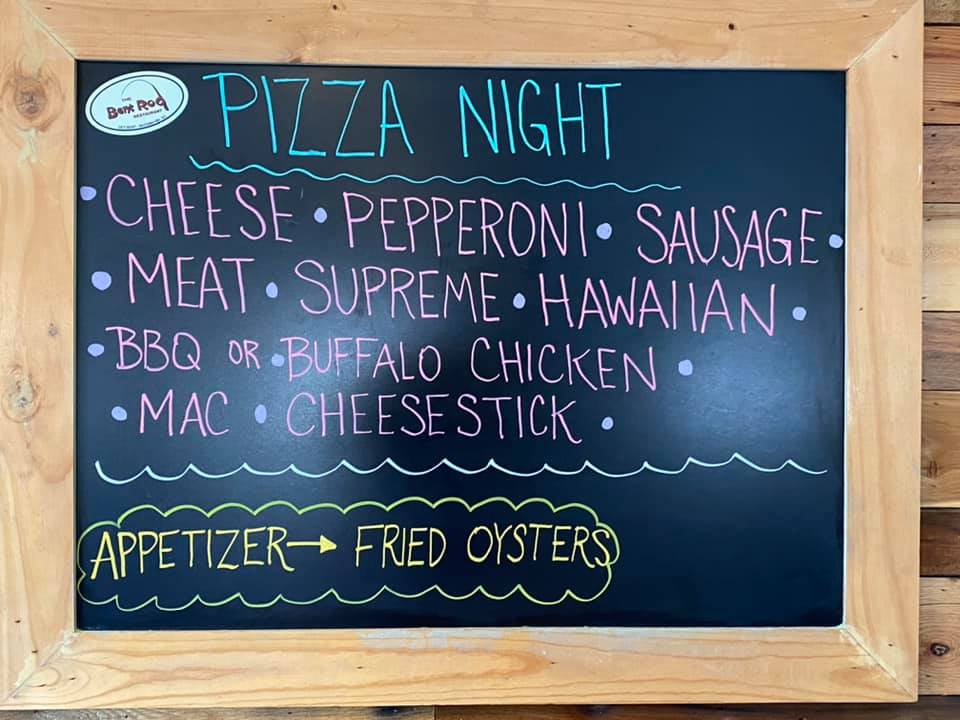 THE
Bent Rod
RESTAURANT
PIZZA NIGHT
• CHEESE • PEPPERONI • SAUSAGE •
• MEAT • SUPREME • HAWAIIAN •
• BBQ OR • BUFFALO CHICKEN •
• MAC • CHEESESTICK •
APPETIZER → FRIED OYSTERS